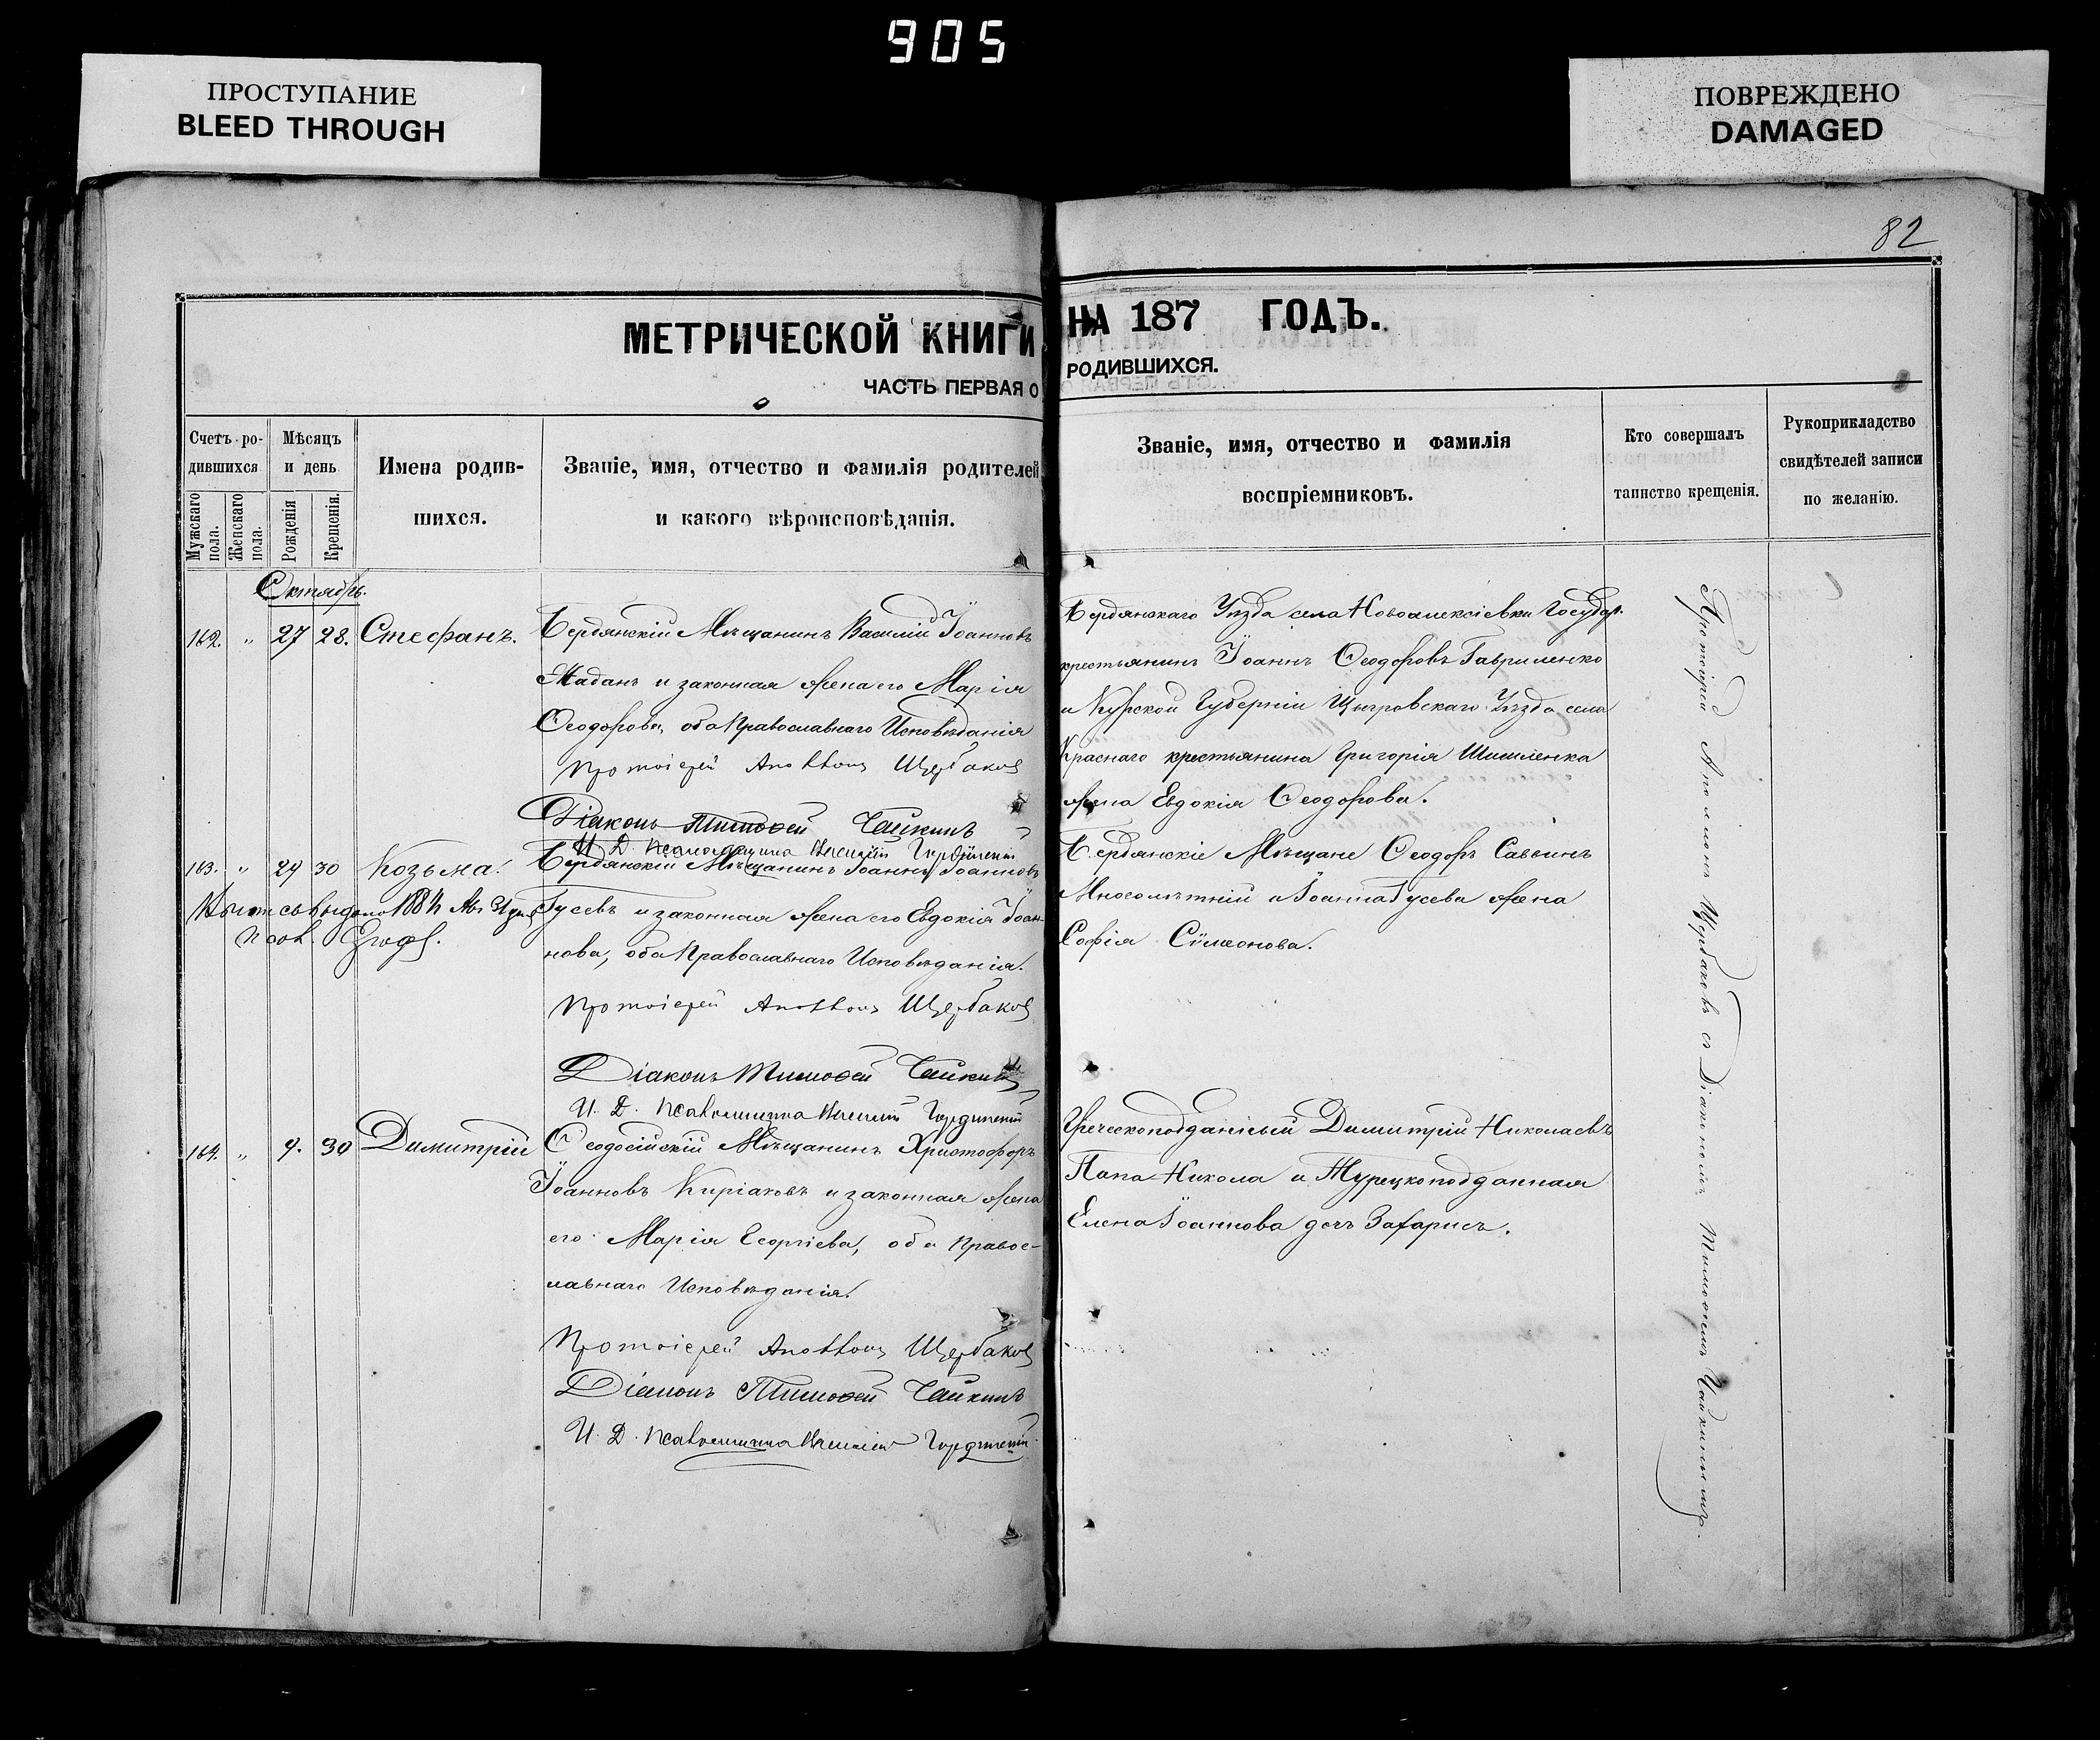 905
ПРОСТУПАНИЕ
BLEED THROUGH
ПОВРЕЖДЕНО
DAMAGED
82
МЕТРИЧЕСКОЙ КНИГИ НА 187 ГОДЪ.
ЧАСТЬ ПЕРВАЯ О РОДИВШИХСЯ.
Счетъ ро-
дившихся
Мужскаго пола.
Женскаго пола.
Мѣсяцъ
и день
Рожденія
Крещенія.
Имена родив-
шихся.
Званіе, имя, отчество и фамилія родителей
и какого вѣроисповѣданія.
Званіе, имя, отчество и фамилія
воспріемниковъ.
Кто совершалъ
таинство крещенія.
Рукоприкладство
свидѣтелей записи
по желанію.
Октябрь.
162. " 27 28. Стефанъ.
Бердянскій Мѣщанинъ Василій Іоанновъ
Маданъ и законная жена его Марія
Ѳеодорова, оба Православнаго Исповѣданія
Протоіерей Аполлонъ Щербаковъ
Діаконъ Тимоѳей Чайкинъ
И. Д. Псаломщика
Бердянскаго Уѣзда села Новоалексіевки Государ.
крестьянинъ Іоаннъ Ѳеодоровъ Гавриленко
и Курской Губерніи Щигровскаго Уѣзда села
Краснаго крестьянина Григорія Шишленка
жена Евдокія Ѳеодорова.
163. " 29 30 Козьма.
Бердянскій Мѣщанинъ Іоаннъ Іоанновъ
Гусевъ и законная жена его Евдокія Іоан-
нова, оба Православнаго Исповѣданія.
Протоіерей Аполлонъ Щербаковъ
Діаконъ Тимоѳей Чайкинъ
И. Д. Псаломщика
Выпись выдана 1884
Бердянскіе Мѣщане Ѳеодоръ Саввинъ
Многолѣтній и Іоанна Гусева жена
Софія Сѵмеонова.
164. " 9. 30 Димитрій
Ѳеодосійскій Мѣщанинъ Христофоръ
Іоанновъ Киріаковъ и законная жена
его Марія Георгіева, оба Правос-
лавнаго Исповѣданія.
Протоіерей Аполлонъ Щербаковъ
Діаконъ Тимоѳей Чайкинъ
И. Д. Псаломщика
Греческоподданный Димитрій Николаевъ
Папа-Никола и Турецкоподданная
Елена Іоаннова дочь Зафарисъ.
Протоіерей Аполлонъ Щербаковъ съ Діакономъ Тимоѳеемъ Чайкинымъ.